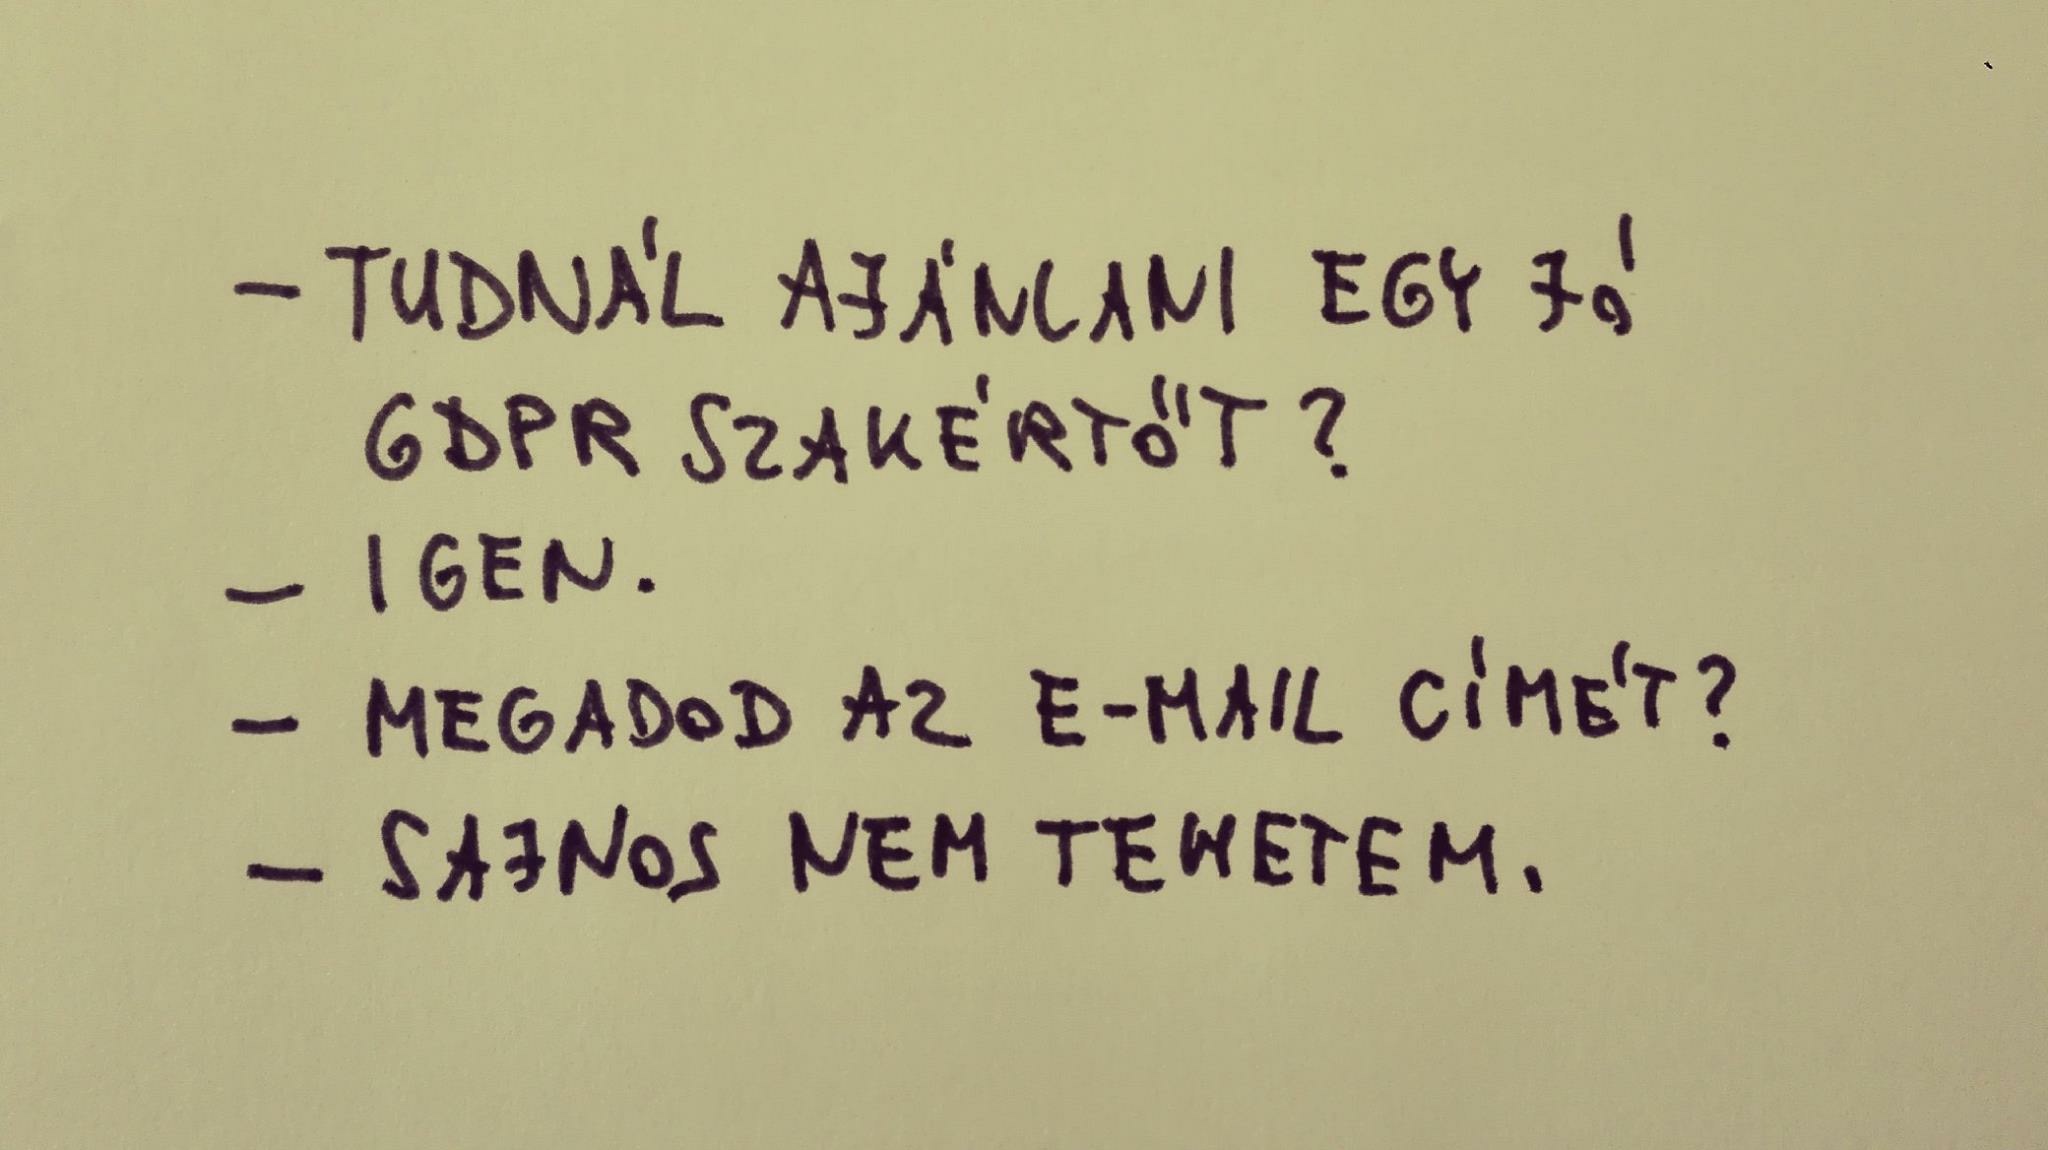 - TUDNÁL AJÁNLANI EGY JÓ
GDPR SZAKÉRTŐT?
- IGEN.
- MEGADOD AZ E-MAIL CÍMÉT?
- SAJNOS NEM TEHETEM.